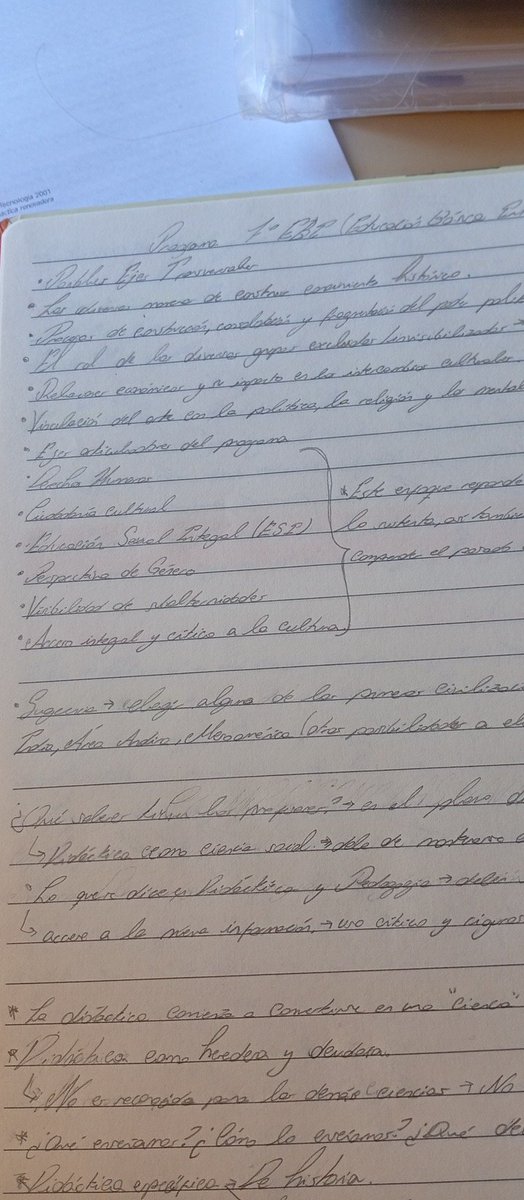 Tecnología 2001
áctica renovadera
Programa 1º EBI (Educación Básica
• Posibles Ejes Transversales
• Las diversas maneras de construir conocimiento histórico.
• Procesos de construcción, consolidación y fragmentación del poder
• El rol de los diversos grupos excluidos / invisibilizados →
• Relaciones económicas y su impacto en los intercambios culturales
• Vinculación del arte con la política, la religión y las
• Ejes articuladores del programa
• Derechos Humanos
• Ciudadanía cultural
• Educación Sexual Integral (ESI)
• Perspectiva de Género
• Visibilidad de subalternidades
• Acceso integral y crítico a la cultura
* Este enfoque responde
lo sustenta, así también
comprender el pasado
• Sugerencia → elegir alguna de las primeras
India, Área Andina, Mesoamérica (otras posibilidades a
¿Qué saberes los profesores? → en el plano
↳ Didáctica como ciencia social → debe de nostrarse
• Lo que se dice en Didáctica y Pedagogía →
↳ accede a la nueva información. → uso crítico y
* La didáctica comienza a convertirse en una "ciencia"
* Didáctica como heredera y deudora.
↳ No es reconocida para las demás ciencias → No
* ¿Qué enseñamos? ¿Cómo lo enseñamos? ¿Qué
* Didáctica específica → De historia.